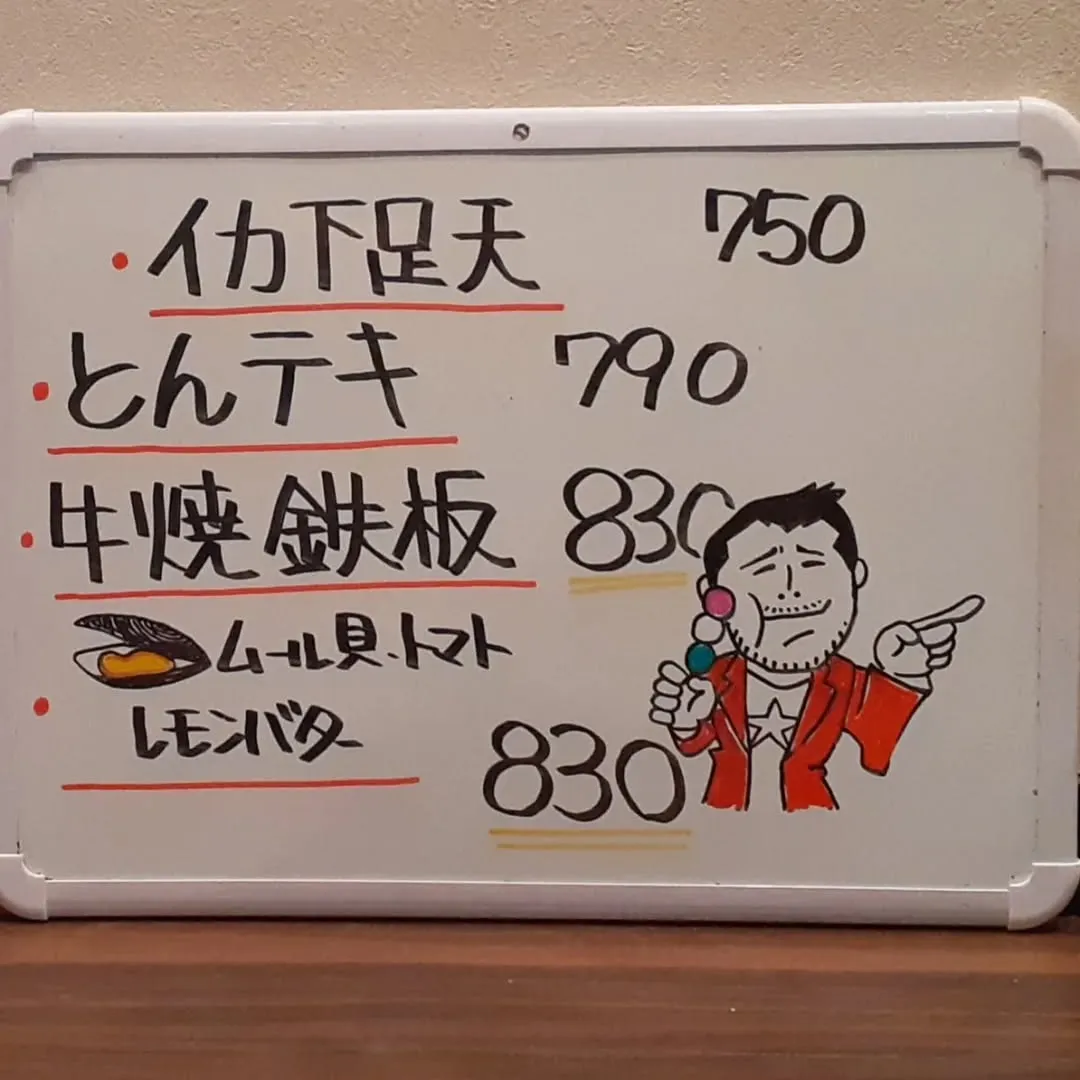 ・イカ下足天 750
・とんテキ 790
・牛焼鉄板 830
ムール貝・トマト
・レモンバター 830